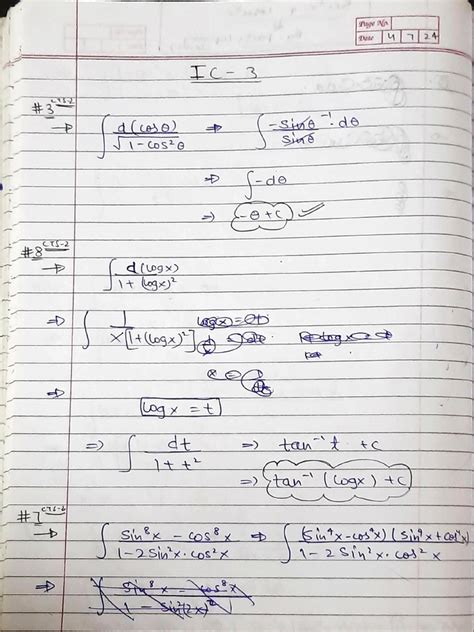 Page No.
Date 4 7 24
IC-3
#3 CTS-2
→ ∫ d(cosθ)/√1-cos²θ ⇒ ∫ -sinθ/sinθ ⁻¹ · dθ
⇒ ∫-dθ
⇒ -θ+c ✓
#8 CTS-2
→ ∫ d(logx)/1+(logx)²
⇒ ∫ 1/x[1+(logx)²]
⇒ logx = t
⇒ ∫ dt/1+t² ⇒ tan⁻¹ t + c
⇒ tan⁻¹(logx)+c
#7
→ ∫ Sin⁸x - cos⁸x/1-2Sin²x·cos²x ⇒ ∫ (Sin⁴x-cos⁴x)(Sin⁴x+cos⁴x)/1-2Sin²x·cos²x
⇒ ∫ Sin⁸x - cos⁸x